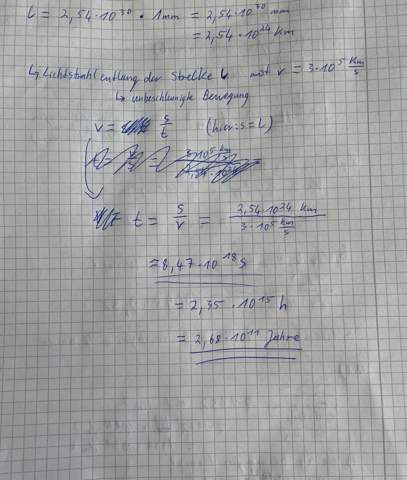 L = 2,54·10³⁰ · 1mm = 2,54·10³⁰ mm
= 2,54·10²⁴ km
↳ Lichtstrahl entlang der Strecke L mit v = 3·10⁵ km/s
↳ unbeschleunigte Bewegung
v = s/t (hier: s = L)
t = s/v = 2,54·10²⁴ km / 3·10⁵ km/s
= 8,47·10¹⁸ s
= 2,35·10¹⁵ h
= 2,68·10¹¹ Jahre